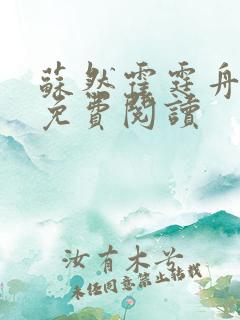 蘇然霆霆舟
免費閱讀
汝有木兮
未经同意禁止转载